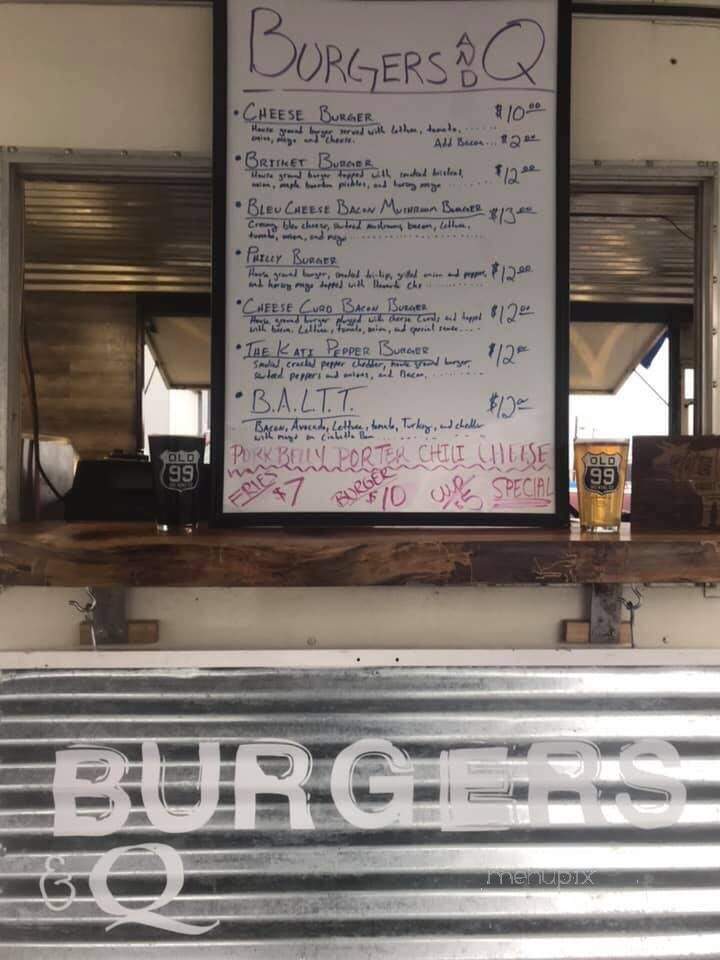 BURGERS AND Q
• CHEESE BURGER $10.00
House ground burger served with lettuce, tomato, ......
onion, mayo and cheese. Add Bacon... $2.00
• BRISKET BURGER
House ground burger topped with smoked brisket, $12.00
onion, maple bourbon pickles, and horsey mayo ........
• BLEU CHEESE BACON MUSHROOM BURGER $13.00
Creamy bleu cheese, sauteed mushrooms, bacon, lettuce,
tomato, onion, and mayo ....................
• PHILLY BURGER
House ground burger, smoked tri-tip, grilled onion and pepper, $12.00
and horsey mayo topped with
• CHEESE CURD BACON BURGER $12.00
House ground burger plugged with cheese curds, and topped
with bacon. Lettuce, tomato, onion, and special sauce....
• THE KATI PEPPER BURGER $12.00
Smoked, cracked pepper chedder, house ground burger,
Sauteed peppers and onions, and Bacon. ........
• B.A.L.T.T. $12.00
BACON, Avocado, Lettuce, tomato, Turkey, and chedder
with mayo on Ciabatta Bun ............
PORKBELLY PORTER CHILI CHEESE
FRIES $7 BURGER $10 CUP $5 SPECIAL
OLD
99
OLD
99
BURGERS
& Q
menupix